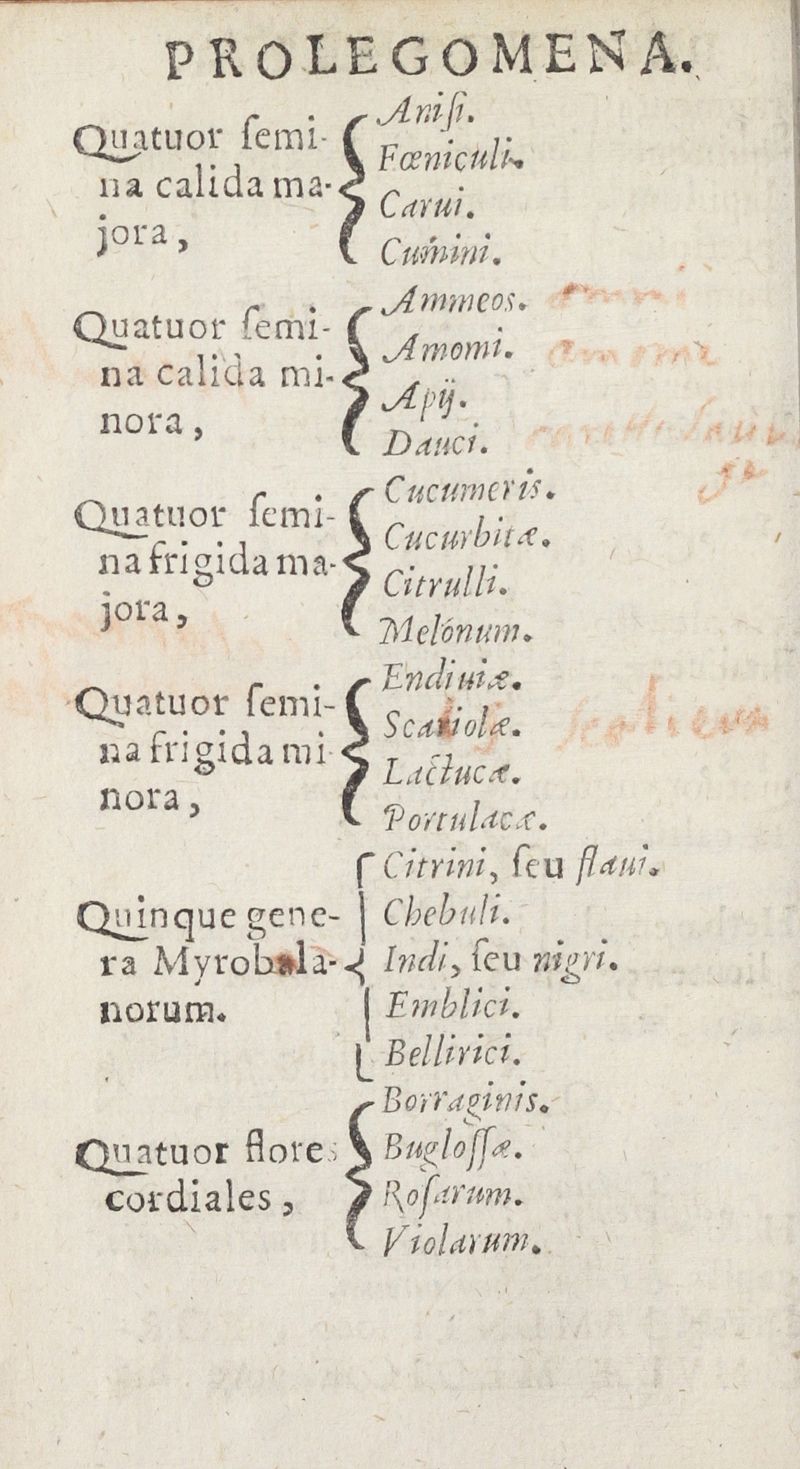 PROLEGOMENA.
Quatuor ſemi-
na calida ma-
jora,
Aniſi.
Fœniculi.
Carui.
Cumini.
Quatuor ſemi-
na calida mi-
nora,
Ammeos.
Amomi. amomi
Apij.
Dauci.
Quatuor ſemi-
na frigida ma-
jora,
Cucumeris.
Cucurbitæ.
Citrulli.
Melónum.
Quatuor ſemi-
na frigida mi
nora,
Endiuiæ.
Scariolæ.
Lactucæ.
Portulacæ.
Quinque gene-
ra Myrobala-
norum.
Citrini, ſeu flaui.
Chebuli.
Indi, ſeu nigri.
Emblici.
Bellirici.
Quatuor flores
cordiales,
Borraginis.
Bugloſſæ.
Roſarum.
Violarum.